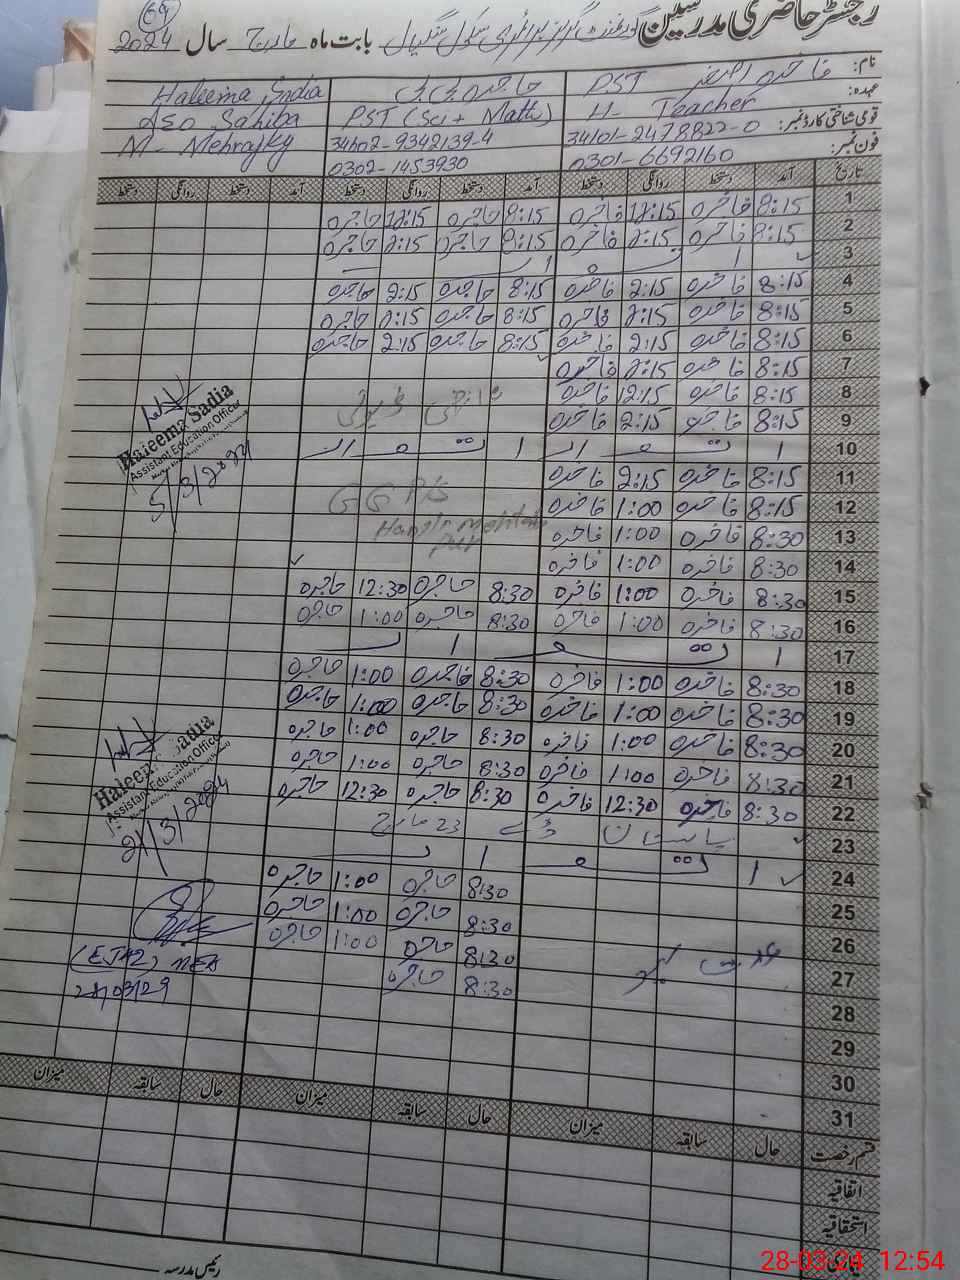 69
رجسٹر حاضری مدرسین گورنمنٹ گرلز پرائمری سکول سنگیال بابت ماہ مارچ سال 2024
نام: فاخرہ اصغر PST حاجرہ بی بی Haleema Sadia
عہدہ: H- Teacher PST (Sci + Math) AEO Sahiba
قومی شناختی کارڈ نمبر: 34101-2478822-0 34602-9342139-4 M- Mehrajky
فون نمبر: 0301-6692160 0302-1453930
تاریخ آمد دستخط روانگی دستخط آمد دستخط روانگی دستخط آمد دستخط روانگی دستخط
1 8:15 فاخرہ 12:15 فاخرہ 8:15 حاجرہ 12:15 حاجرہ
2 8:15 فاخرہ 2:15 فاخرہ 8:15 حاجرہ 2:15 حاجرہ
3 ا ت و ا ر
4 8:15 فاخرہ 2:15 فاخرہ 8:15 حاجرہ 2:15 حاجرہ
5 8:15 فاخرہ 2:15 فاخرہ 8:15 حاجرہ 2:15 حاجرہ
6 8:15 فاخرہ 2:15 فاخرہ 8:15 حاجرہ 2:15 حاجرہ
7 8:15 فاخرہ 2:15 فاخرہ
8 8:15 فاخرہ 12:15 فاخرہ
9 8:15 فاخرہ 2:15 فاخرہ ڈیوٹی
10
11 8:15 فاخرہ 2:15 فاخرہ
12 8:15 فاخرہ 1:00 فاخرہ GGP/S
13 8:30 فاخرہ 1:00 فاخرہ
14 8:30 فاخرہ 1:00 فاخرہ
15 8:30 فاخرہ 1:00 فاخرہ 8:30 حاجرہ 12:30 حاجرہ
16 8:30 فاخرہ 1:00 فاخرہ 8:30 حاجرہ 1:00 حاجرہ
17
18 8:30 فاخرہ 1:00 فاخرہ 8:30 حاجرہ 1:00 حاجرہ
19 8:30 فاخرہ 1:00 فاخرہ 8:30 حاجرہ 1:00 حاجرہ
20 8:30 فاخرہ 1:00 فاخرہ 8:30 حاجرہ 1:00 حاجرہ
21 8:30 فاخرہ 1:00 فاخرہ 8:30 حاجرہ 1:00 حاجرہ
22 8:30 فاخرہ 12:30 فاخرہ 8:30 حاجرہ 12:30 حاجرہ
23 پاکستان ڈے 23 مارچ
24
25 8:30 حاجرہ 1:00 حاجرہ
26 8:30 حاجرہ 1:00 حاجرہ
27 8:30 حاجرہ 1:00 حاجرہ
28 8:30 حاجرہ
29
30
31
Haleema Sadia
Assistant Education Officer
5/3/2024
Haleema Sadia
Assistant Education Officer
21/3/2024
(EJAZ) MEA
قسم رخصت حال سابقہ میزان حال سابقہ میزان حال سابقہ میزان
اتفاقیہ
استحقاقیہ
رئیس مدرسہ
28-03-24 12:54